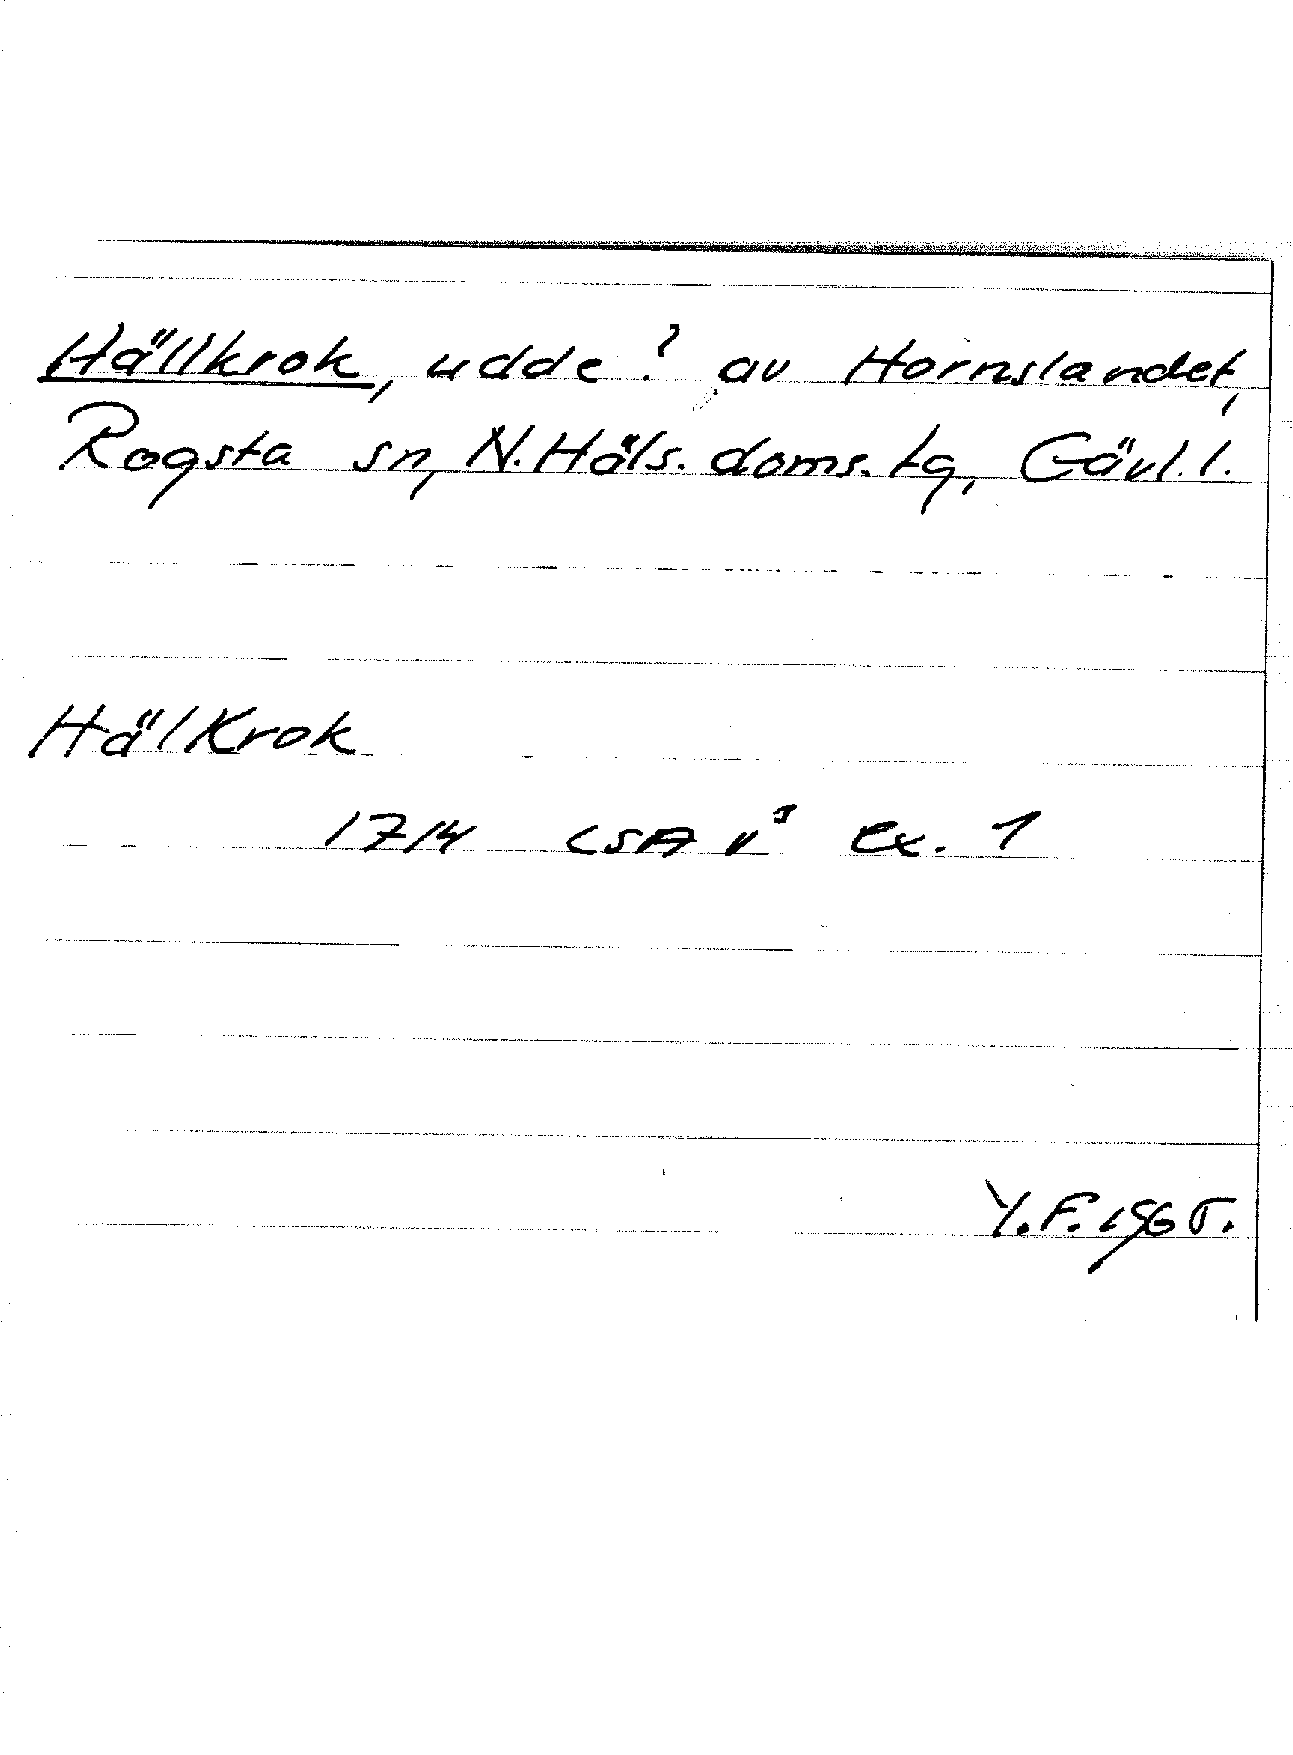 Hällkrok, udde? av Hornslandet,
Rogsta sn, N. Häls. doms. tg, Gävl. l.
HälKrok
1714 LSA ex. 1
Y.F. 1965.